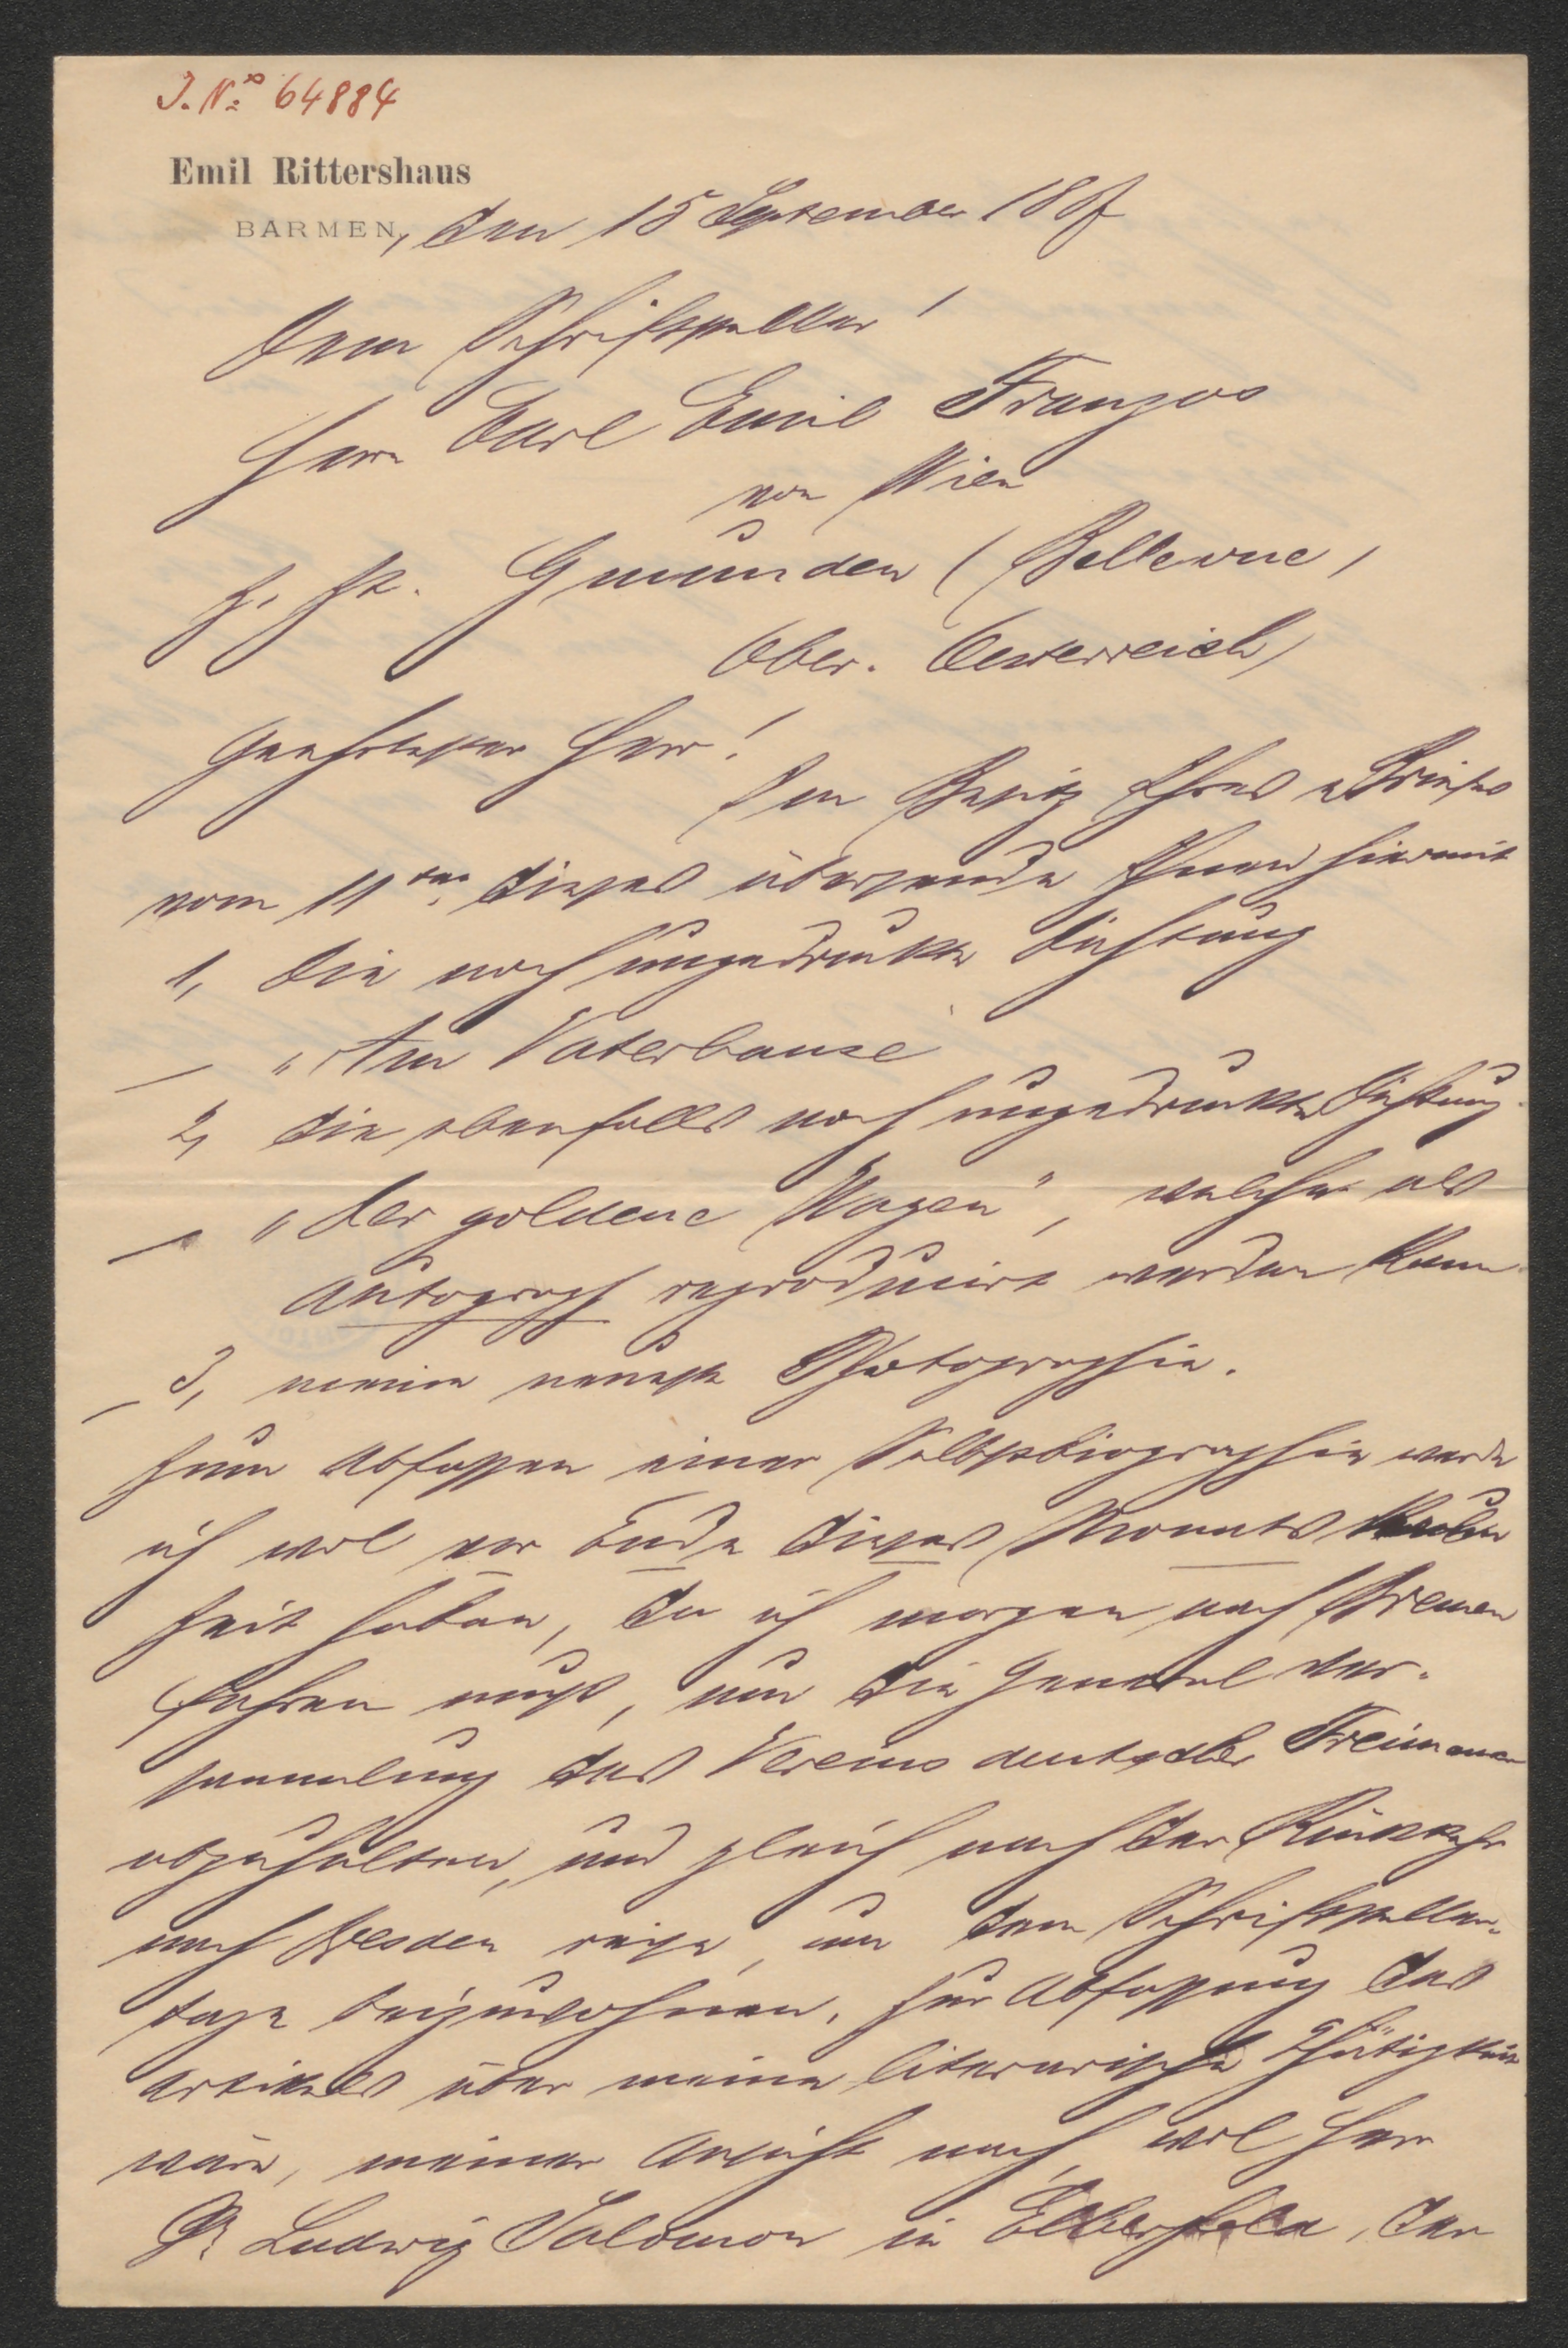 J. No: 64884
Emil Rittershaus
BARMEN, den 15 September 1887
Dem Schriftsteller
Herrn Carl Emil Franzos
von Wien
z. Zt. Gmunden (Bellevue,
Ober-Oesterreich)
Geehrtester Herr!
Im Besitz Ihres Briefes
vom 11ten dieses übersende Ihnen hiermit
1, die noch ungedruckte Dichtung
"Am Vaterhause
2, die ebenfalls noch ungedruckte Dichtung
"Der goldene Wagen", welche als
Autograph reproducirt werden kann
3, meine neueste Photographie.
Zum Abfassen einer Selbstbiographie werde
ich wol vor Ende dieses Monats
Zeit haben, da ich morgen nach Bremen
fahren muß, um die General ver-
sammlung des Vereins deutscher Freimaurer
abzuhalten, und gleich nach der Rückkehr
nach Dresden reise, um dem Schriftsteller-
tage beizuwohnen. Zur Abfassung des
Artikels über meine literarische Thätigkeit
wäre, meiner Ansicht nach, wol Herr
Dr Ludwig Salomon in Elberfeld, der